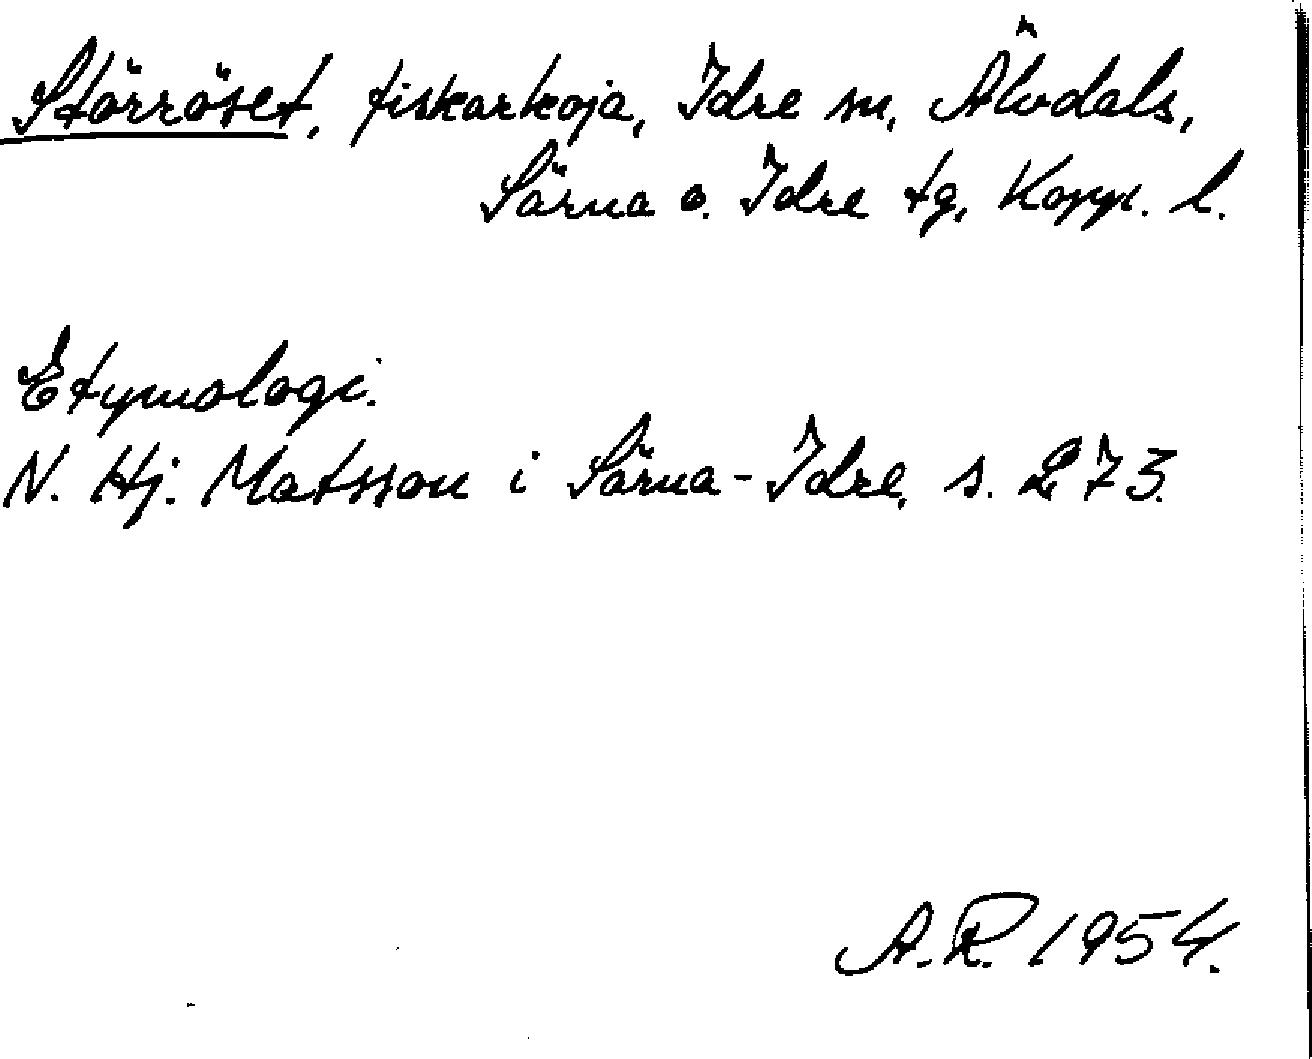 Störröset, fiskarkoja, Idre sn, Älvdals,
Särna o. Idre tg, Kopp. l.
Etymologi.
N. Hj. Matsson i Särna-Idre, s. 273.
A.R. 1954.